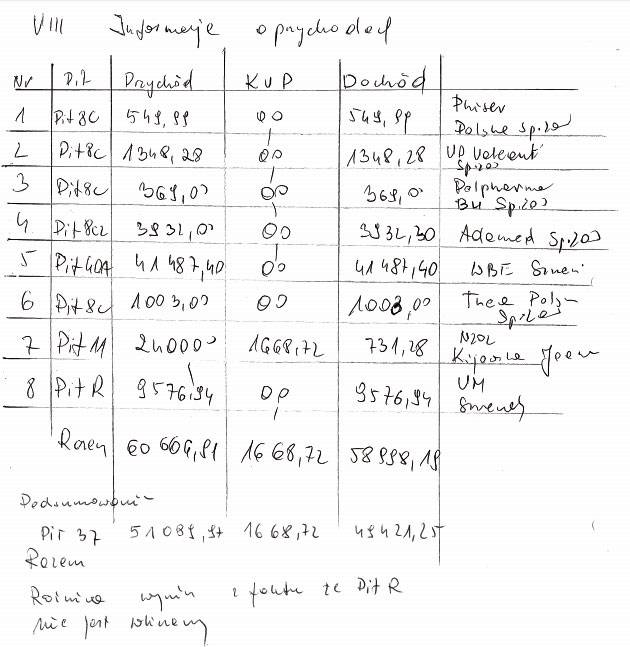 VIII Informacje o przychodach
Nr Pit Przychód KUP Dochód
1 Pit 8C 549,99 00 549,99 Phiser
Polska Sp. zoo
2 Pit 8c 1348,28 00 1348,28 UP
Sp. zoo
3 Pit 8c 369,00 00 369,0 Polpharma
BH Sp. zoo
4 Pit 8c 3932,00 00 3932,30 Adamed Sp. zoo
5 Pit 40A 41487,40 00 41487,40
6 Pit 8c 1003,00 00 1003,00 Thea Polska
Sp. zoo
7 Pit 11 24000 1668,72 731,28 NZOZ
8 Pit R 9576,94 00 9576,94 UM
Razem 60666,91 1668,72 58998,19
Podsumowanie
Pit 37 51089,97 1668,72 49421,25
Razem
Różnica wynika z faktu że Pit R
nie jest